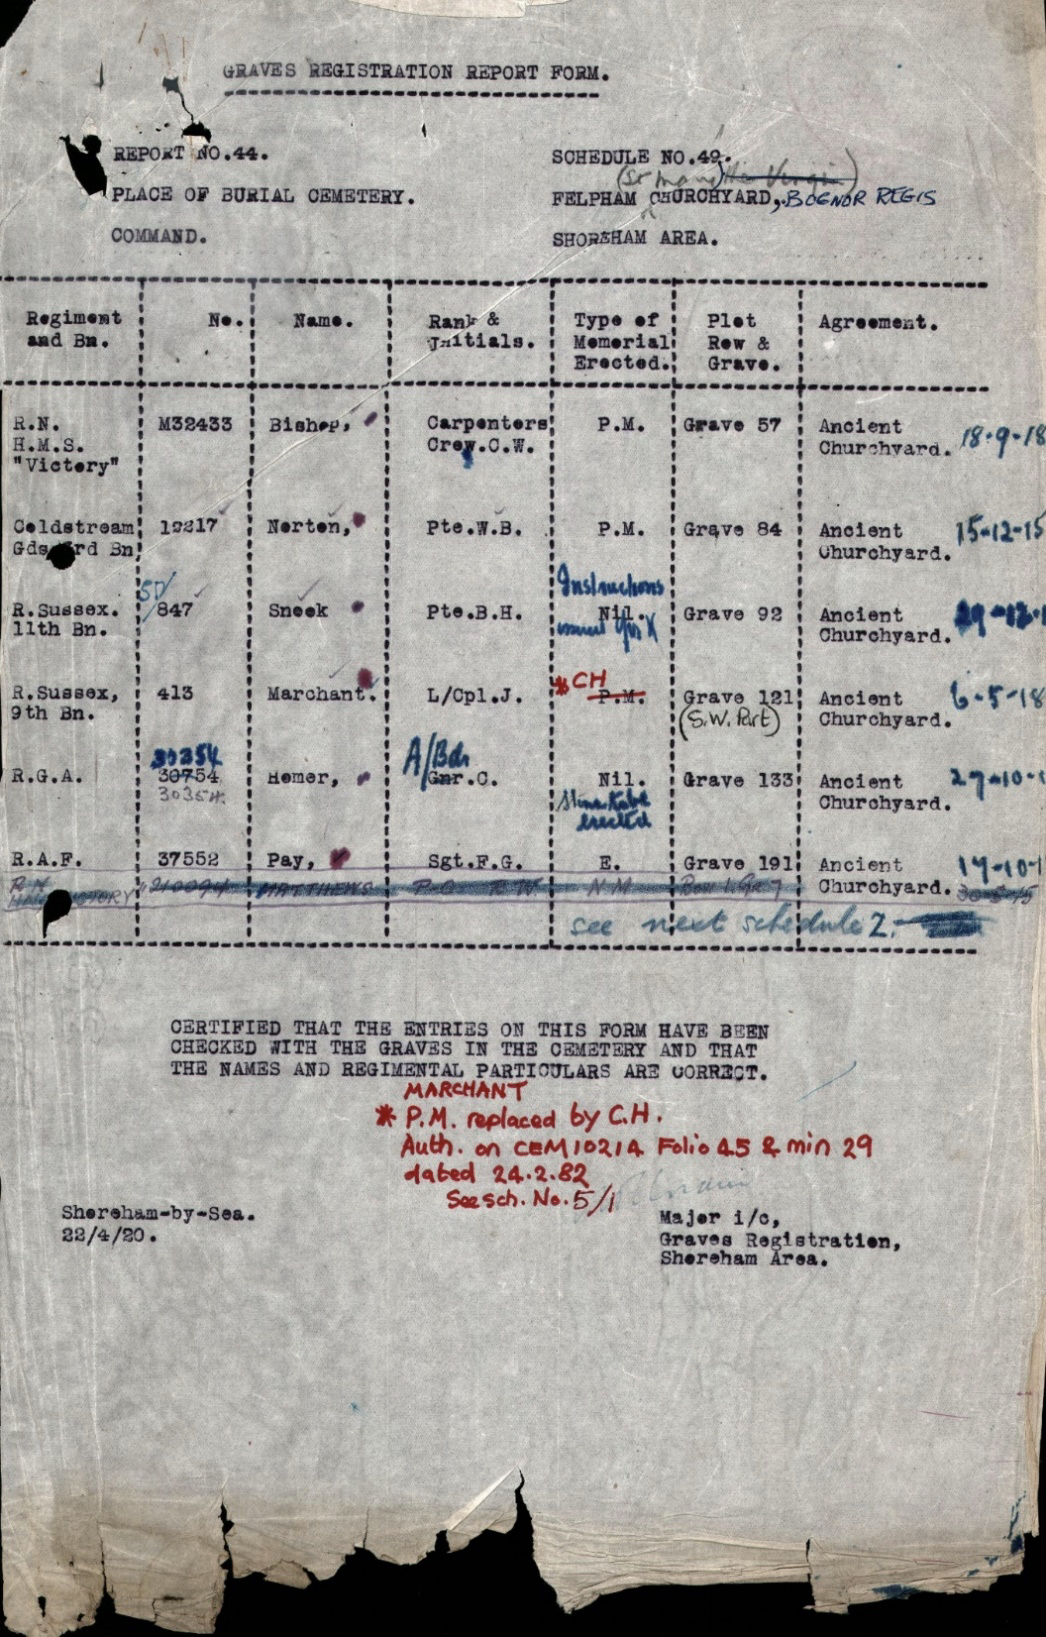 GRAVES REGISTRATION REPORT FORM.
REPORT NO.44. SCHEDULE NO.49.
(St Mary the Virgin)
PLACE OF BURIAL CEMETERY. FELPHAM CHURCHYARD, BOGNOR REGIS
COMMAND. SHOREHAM AREA.
Regiment and Bn. No. Name. Rank & Initials. Type of Memorial Erected. Plot Row & Grave. Agreement.
R.N. M32433 Bishop, Carpenters P.M. Grave 57 Ancient 18-9-18
H.M.S. Crew.C.W. Churchyard.
"Victory"
Coldstream 19217 Norton, Pte.W.B. P.M. Grave 84 Ancient 15-12-15
Gds rd Bn Churchyard.
SD/ Instructions
R.Sussex. 847 Snook Pte.B.H. Nil. Grave 92 Ancient
11th Bn. issued Churchyard.
* CH
R.Sussex, 413 Marchant. L/Cpl.J. P.M. Grave 121 Ancient 6-5-18
9th Bn. (S.W. Part) Churchyard.
30354 A/Bdr
R.G.A. 30754 Homer, Gnr.C. Nil. Grave 133 Ancient 27-10-1
30354. erected Churchyard.
R.A.F. 37552 Pay, Sgt.F.G. E. Grave 191 Ancient
R N 210094 MATTHEWS P.O. R W N.M. Row 1. Gr 7 Churchyard. 30-5-15
VICTORY
see next schedule 2.
CERTIFIED THAT THE ENTRIES ON THIS FORM HAVE BEEN
CHECKED WITH THE GRAVES IN THE CEMETERY AND THAT
THE NAMES AND REGIMENTAL PARTICULARS ARE CORRECT.
MARCHANT
* P.M. replaced by C.H.
Auth. on CEM1021A Folio 45 & min 29
dated 24.2.82
See sch. No. 5/1
Shoreham-by-Sea. Major i/c,
22/4/20. Graves Registration,
Shoreham Area.